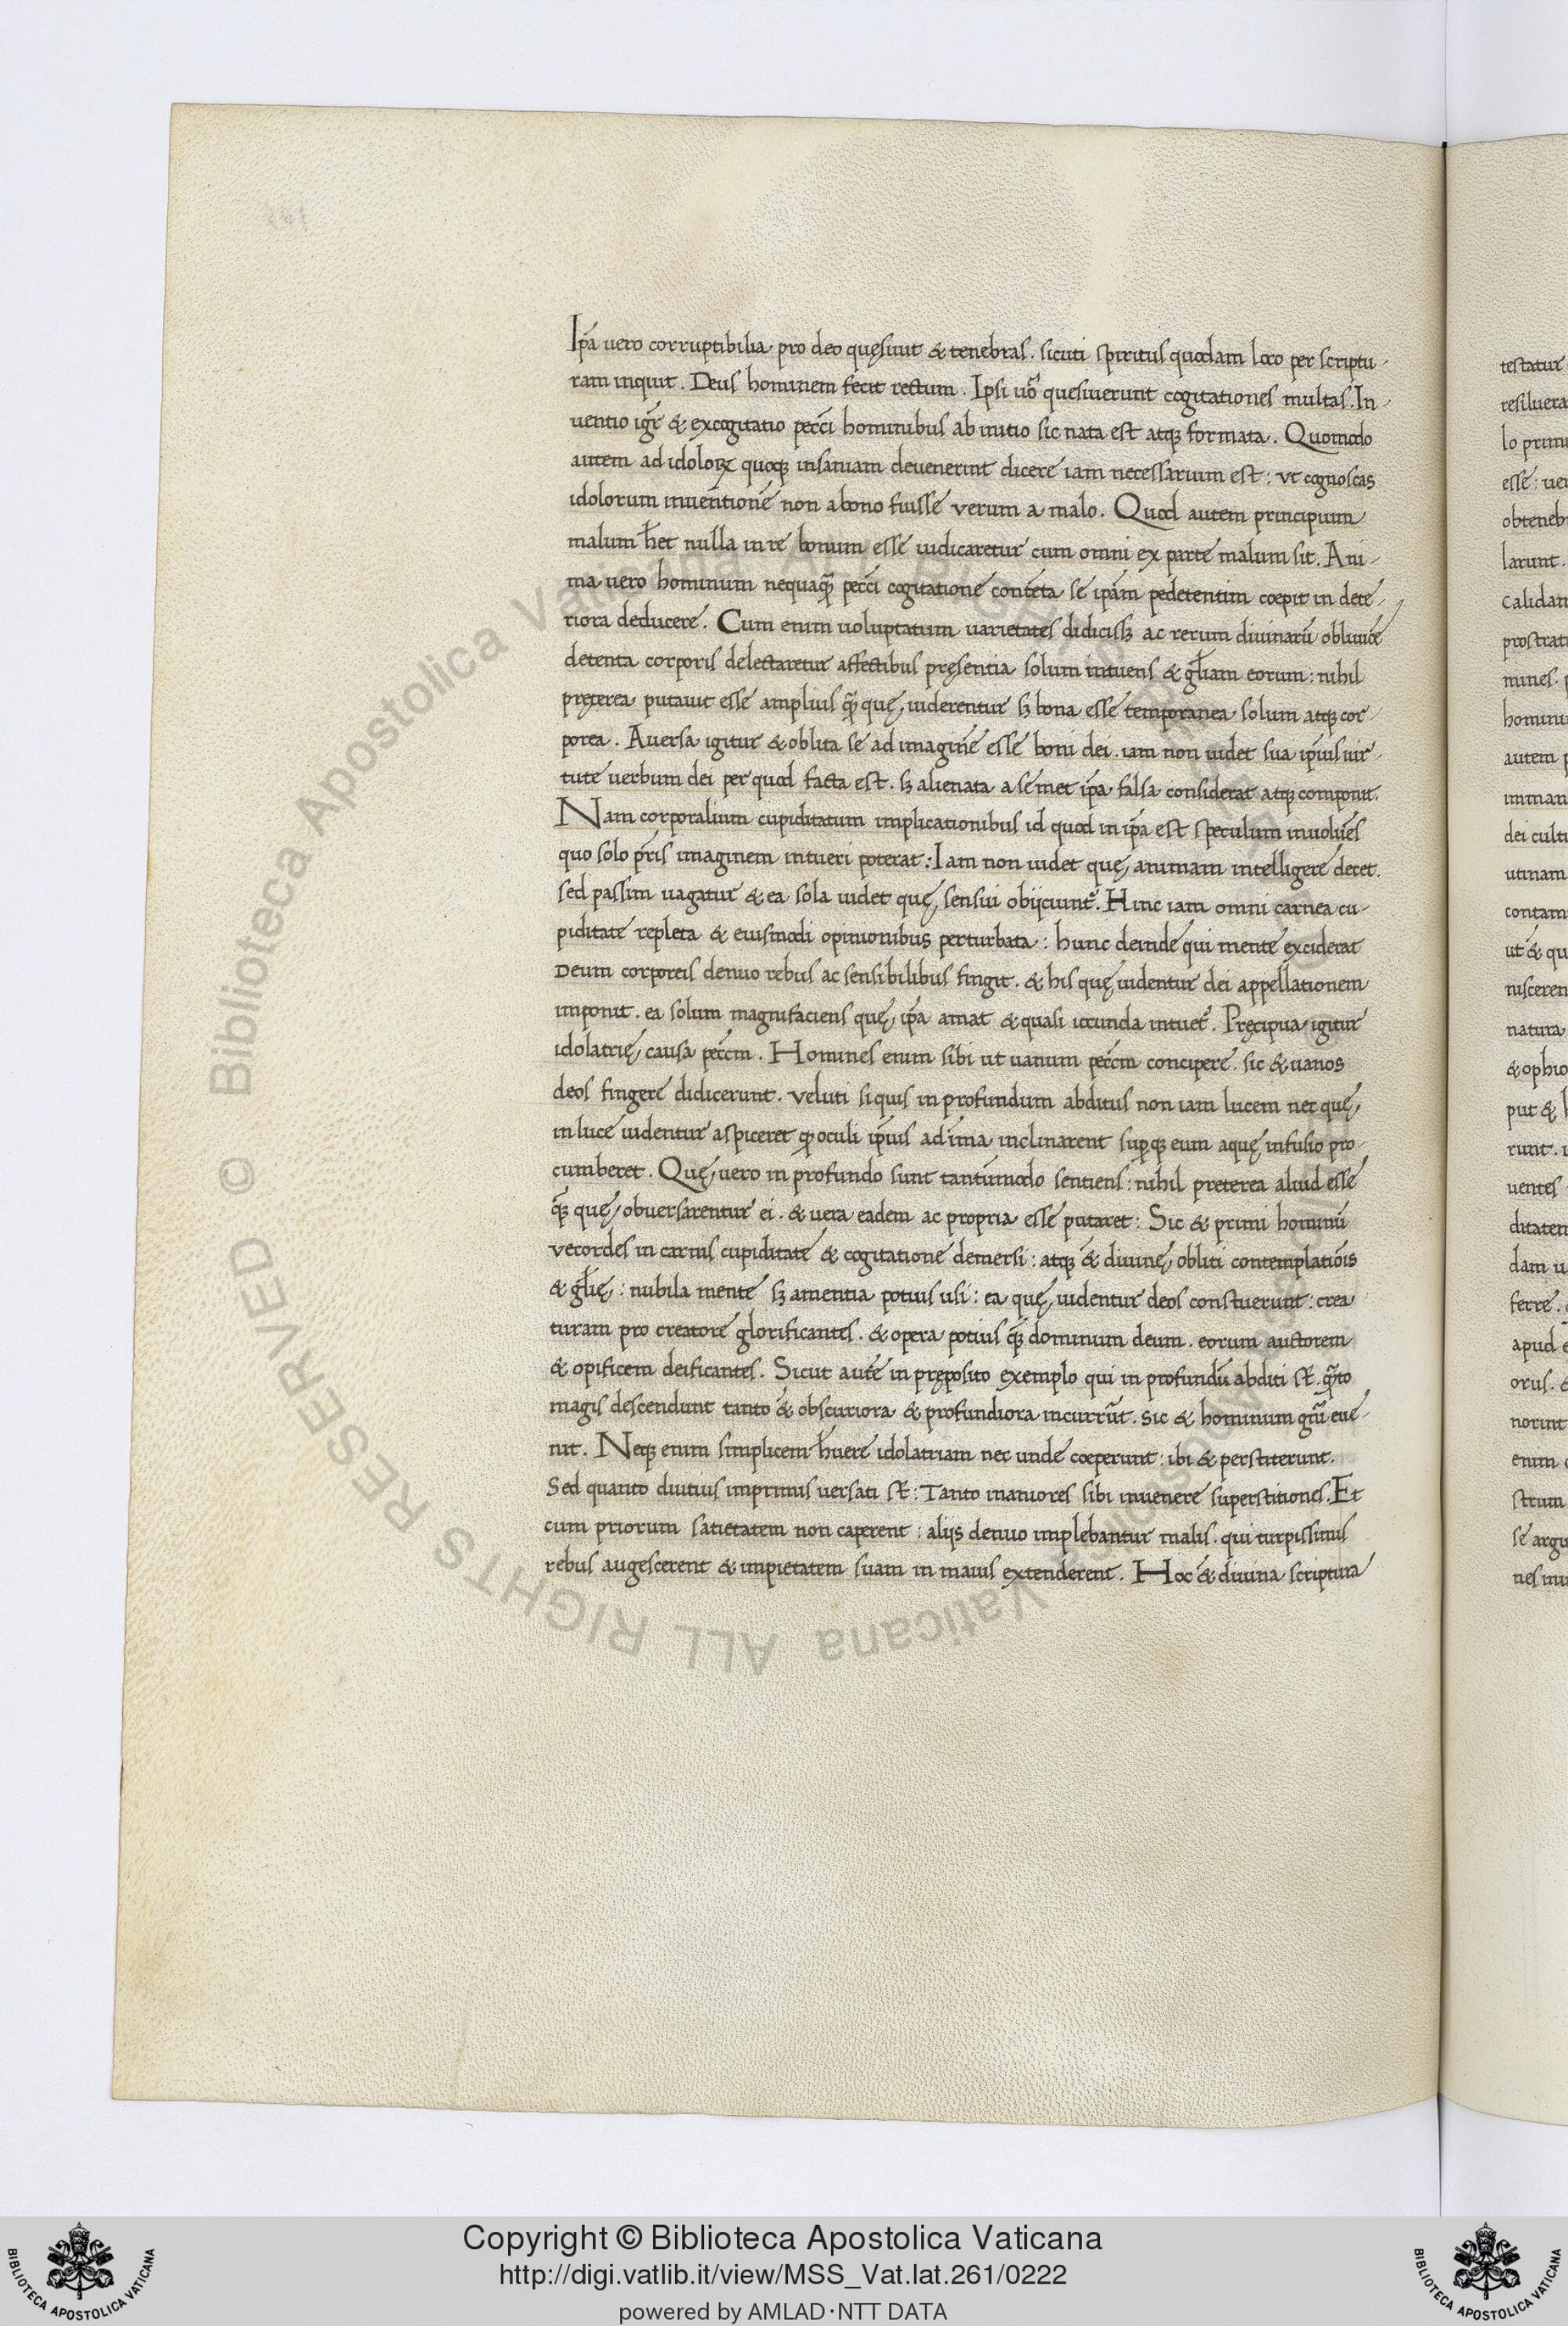 Ip̄a uero corruptibilia pro deo quęsiuit & tenebras. sicuti spiritus quodam loco per scriptu-
ram inquit. Deus hominem fecit rectum. Ipsi uō quesiuerunt cogitationes multas. In-
uentio igr̄ & excogitatio pec̄ci hominibus ab initio sic nata est atqꝫ formata. Quomodo
autem ad idoloꝝ quoqꝫ insaniam deuenerint dicere iam necessarium est: ut cognoscas
idolorum inuentionē non a bono fuisse verum a malo. Quod autem principium
malum h̄et nulla in re bonum esse iudicaretur cum omni ex parte malum sit. Ani-
ma uero hominum nequaqꝫ̄ pec̄ci cogitatione contēta se ip̄am pedetentim coepit in dete-
riora deducere. Cum enim uoluptatum uarietates didicisꝫ ac rerum diuinarū obliuiōe
detenta corporis delectaretur affectibus pręsentia solum intuens & gl̄iam eorum: nihil
pręterea putauit esse amplius qꝫ̄ quę uiderentur sꝫ bona esse temporanea solum atqꝫ cor-
porea. Auersa igitur & oblita se ad imaginē esse boni dei. iam non uidet sua ip̄ius uir-
tute uerbum dei per quod facta est. sꝫ alienata a semet ip̄a falsa considerat atqꝫ componit.
Nam corporalium cupiditatum implicationibus id quod in ip̄a est speculum inuoluēs
quo solo pr̄is imaginem intueri poterat: Iam non uidet quę animam intelligere decet.
sed passim uagatur & ea sola uidet quę sensui obijciunt᷑. Hinc iam omni carnea cu-
piditate repleta & eiusmodi opinionibus perturbata: hunc deinde qui mente exciderat
Deum corporeis denuo rebus ac sensibilibus fingit. & his quę uidentur dei appellationem
imponit. ea solum magnifaciens quę ip̄a amat & quasi iocunda intuet᷑. Pręcipua igitur
idolatrię causa pec̄cm. Homines enim sibi ut uanum pec̄cm concipere. sic & uanos
deos fingere didicerunt. veluti si quis in profundum abditus non iam lucem nec quę
in luce uidentur aspiceret qꝫ oculi ip̄ius ad ima inclinarent suꝑqꝫ eum aquę infusio pro-
cumberet. Quę uero in profundo sunt tantūmodo sentiens: nihil preterea aliud esse
qꝫ̄ quę obuersarentur ei. & uera eadem ac propria esse putaret: Sic & primi hominū
vecordes in carnis cupiditate & cogitatione demersi: atqꝫ & diuinę obliti contemplatiōis
& gl̄ię: nubila mente sꝫ amentia potius usi: ea quę uidentur deos constuerunt: crea-
turam pro creatore glorificantes. & opera potius qꝫ̄ dominum deum. eorum auctorem
& opificem deificantes. Sicut autē in pręposito exemplo qui in profundū abditi st̄. qꝫ̄to
magis descendunt tanto & obscuriora & profundiora incurrūt. sic & hominum gn̄i eue-
nit. Neqꝫ enim simplicem h̄uere idolatriam nec unde coeperunt: ibi & perstiterunt.
Sed quanto diutius inprimis uersati st̄: Tanto maiores sibi inuenere superstitiones. Et
cum priorum satietatem non caperent: alijs denuo implebantur malis. qui turpissimis
rebus augescerent & impietatem suam in maius extenderent. Hoc & diuina scriptura
testatur
lo prim
larunt.
calidan
prostrat
mines.
autem
dei cult
utinam
contam
ut & qu
nisceren
natura
& ophio
put &
runt.
uentes
ditatem
dam
ferre.
apud
orus.
norint
enim
strum
© Biblioteca Apostolica Vaticana ALL RIGHTS RESERVED
Copyright © Biblioteca Apostolica Vaticana
http://digi.vatlib.it/view/MSS_Vat.lat.261/0222
powered by AMLAD·NTT DATA
BIBLIOTECA APOSTOLICA VATICANA
BIBLIOTECA APOSTOLICA VATICANA